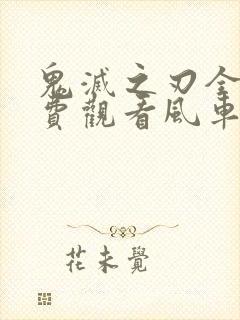 鬼滅之刃全
費觀看風車
花未覺